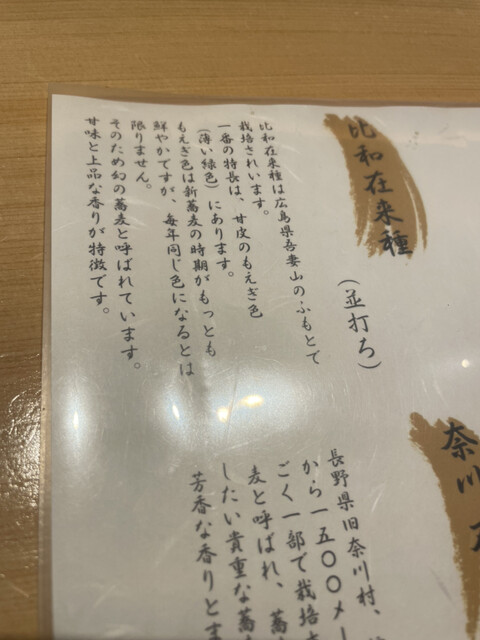 比和在来種
(並打ち)
比和在来種は広島県吾妻山のふもとで
栽培されいます。
一番の特長は、甘皮のもえぎ色
(薄い緑色)にあります。
もえぎ色は新蕎麦の時期がもっとも
鮮やかですが、毎年同じ色になるとは
限りません。
そのため幻の蕎麦と呼ばれています。
甘味と上品な香りが特徴です。
奈川
長野県旧奈川村、
から一五〇〇メー
ごく一部で栽培さ
麦と呼ばれ、蕎
したい貴重な蕎
芳香な香りとま